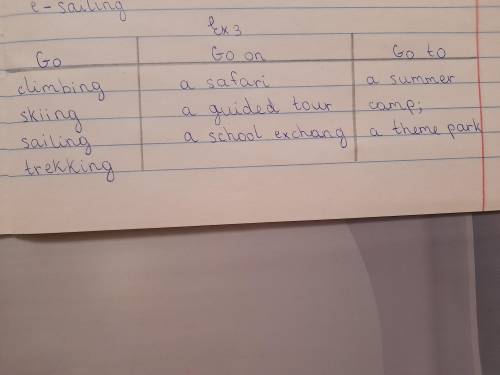 e-sailing
Ex 3
Go Go on Go to
climbing a safari a summer
skiing a guided tour camp;
sailing a school exchang a theme park
trekking